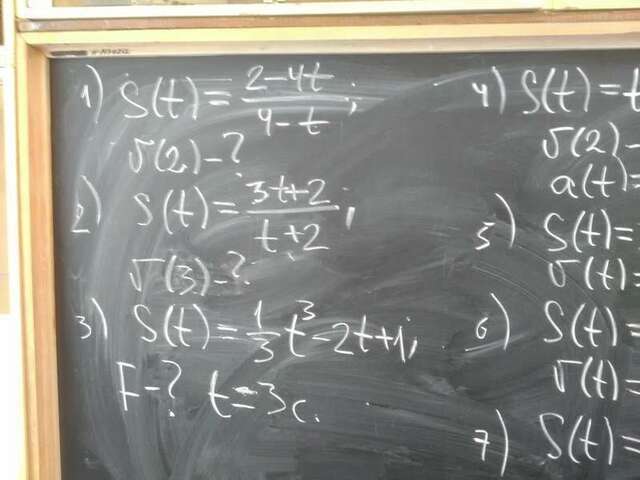 1) S(t) = (2-4t)/(4-t);
v(2) - ?
2) S(t) = (3t+2)/(t+2);
v(3) - ?
3) S(t) = 1/3 t³ - 2t + 1;
F - ? t = 3c.
4) S(t) = t
v(2) -
a(t) =
5) S(t) =
v(t) =
6) S(t) =
v(t) =
7) S(t) =